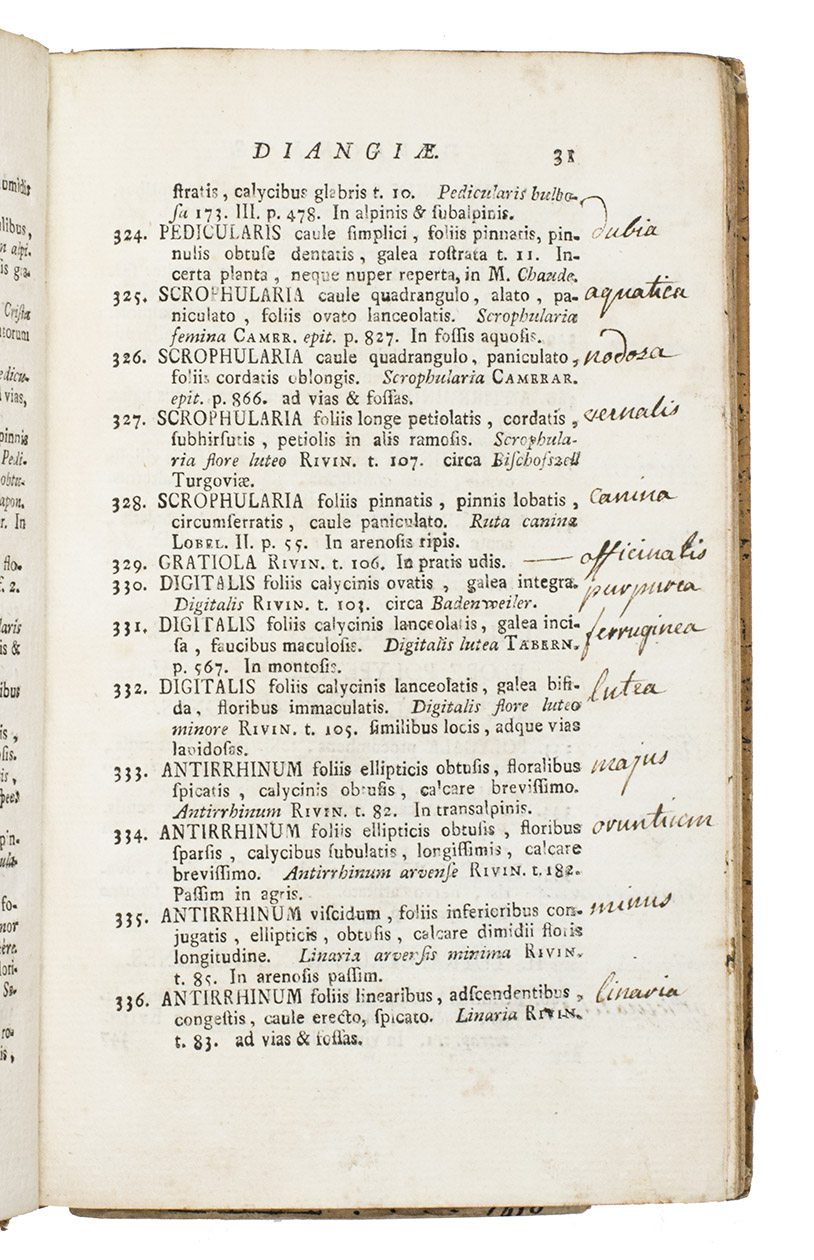 DIANGIÆ. 31
ſtratis, calycibus glabris t. 10. Pedicularis bulbo-
ſa 173. III. p. 478. In alpinis & ſubalpinis.
324. PEDICULARIS caule ſimplici, foliis pinnatis, pin- dubia
nulis obtuſe dentatis, galea roſtrata t. 11. In-
certa planta, neque nuper reperta, in M. Chaude.
325. SCROPHULARIA caule quadrangulo, alato, pa- aquatica
niculato, foliis ovato lanceolatis. Scrophularia
femina CAMER. epit. p. 827. In foſſis aquoſis.
326. SCROPHULARIA caule quadrangulo, paniculato, nodosa
foliis cordatis oblongis. Scrophularia CAMERAR.
epit. p. 866. ad vias & foſſas.
327. SCROPHULARIA foliis longe petiolatis, cordatis, vernalis
ſubhirſutis, petiolis in alis ramoſis. Scrophula-
ria flore luteo RIVIN. t. 107. circa Biſchofszell
Turgoviæ.
328. SCROPHULARIA foliis pinnatis, pinnis lobatis, Canina
circumſerratis, caule paniculato. Ruta canina
LOBEL. II. p. 55. In arenoſis ripis.
329. GRATIOLA RIVIN. t. 106. In pratis udis. — officinalis
330. DIGITALIS foliis calycinis ovatis, galea integra. purpurea
Digitalis RIVIN. t. 103. circa Badenweiler.
331. DIGITALIS foliis calycinis lanceolatis, galea inci- ferruginea
ſa, faucibus maculoſis. Digitalis lutea TABERN.
p. 567. In montoſis.
332. DIGITALIS foliis calycinis lanceolatis, galea bifi- lutea
da, floribus immaculatis. Digitalis flore luteo
minore RIVIN. t. 105. ſimilibus locis, adque vias
lapidoſas.
333. ANTIRRHINUM foliis ellipticis obtuſis, floralibus majus
ſpicatis, calycinis obtuſis, calcare breviſſimo.
Antirrhinum RIVIN. t. 82. In transalpinis.
334. ANTIRRHINUM foliis ellipticis obtuſis, floribus oruntium
ſparſis, calycibus ſubulatis, longiſſimis, calcare
breviſſimo. Antirrhinum arvenſe RIVIN. t. 182.
Paſſim in agris.
335. ANTIRRHINUM viſcidum, foliis inferioribus con- minus
jugatis, ellipticis, obtuſis, calcare dimidii floris
longitudine. Linaria arvenſis minima RIVIN.
t. 85. In arenoſis paſſim.
336. ANTIRRHINUM foliis linearibus, adſcendentibus, linaria
congeſtis, caule erecto, ſpicato. Linaria RIVIN.
t. 83. ad vias & foſſas.